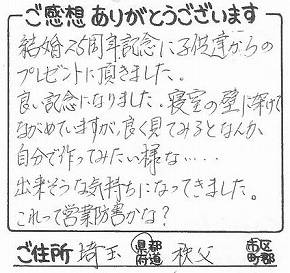 ご感想ありがとうございます
結婚25周年記念に子供達からの
プレゼントに頂きました。
良い記念になりました。寝室の壁に架けて
ながめていますが、良く見てみるとなんか
自分で作ってみたい様な‥‥
出来そうな気持ちになってきました。
これって営業防害かな?
ご住所 埼玉 都道府県 秩父 市区町郡